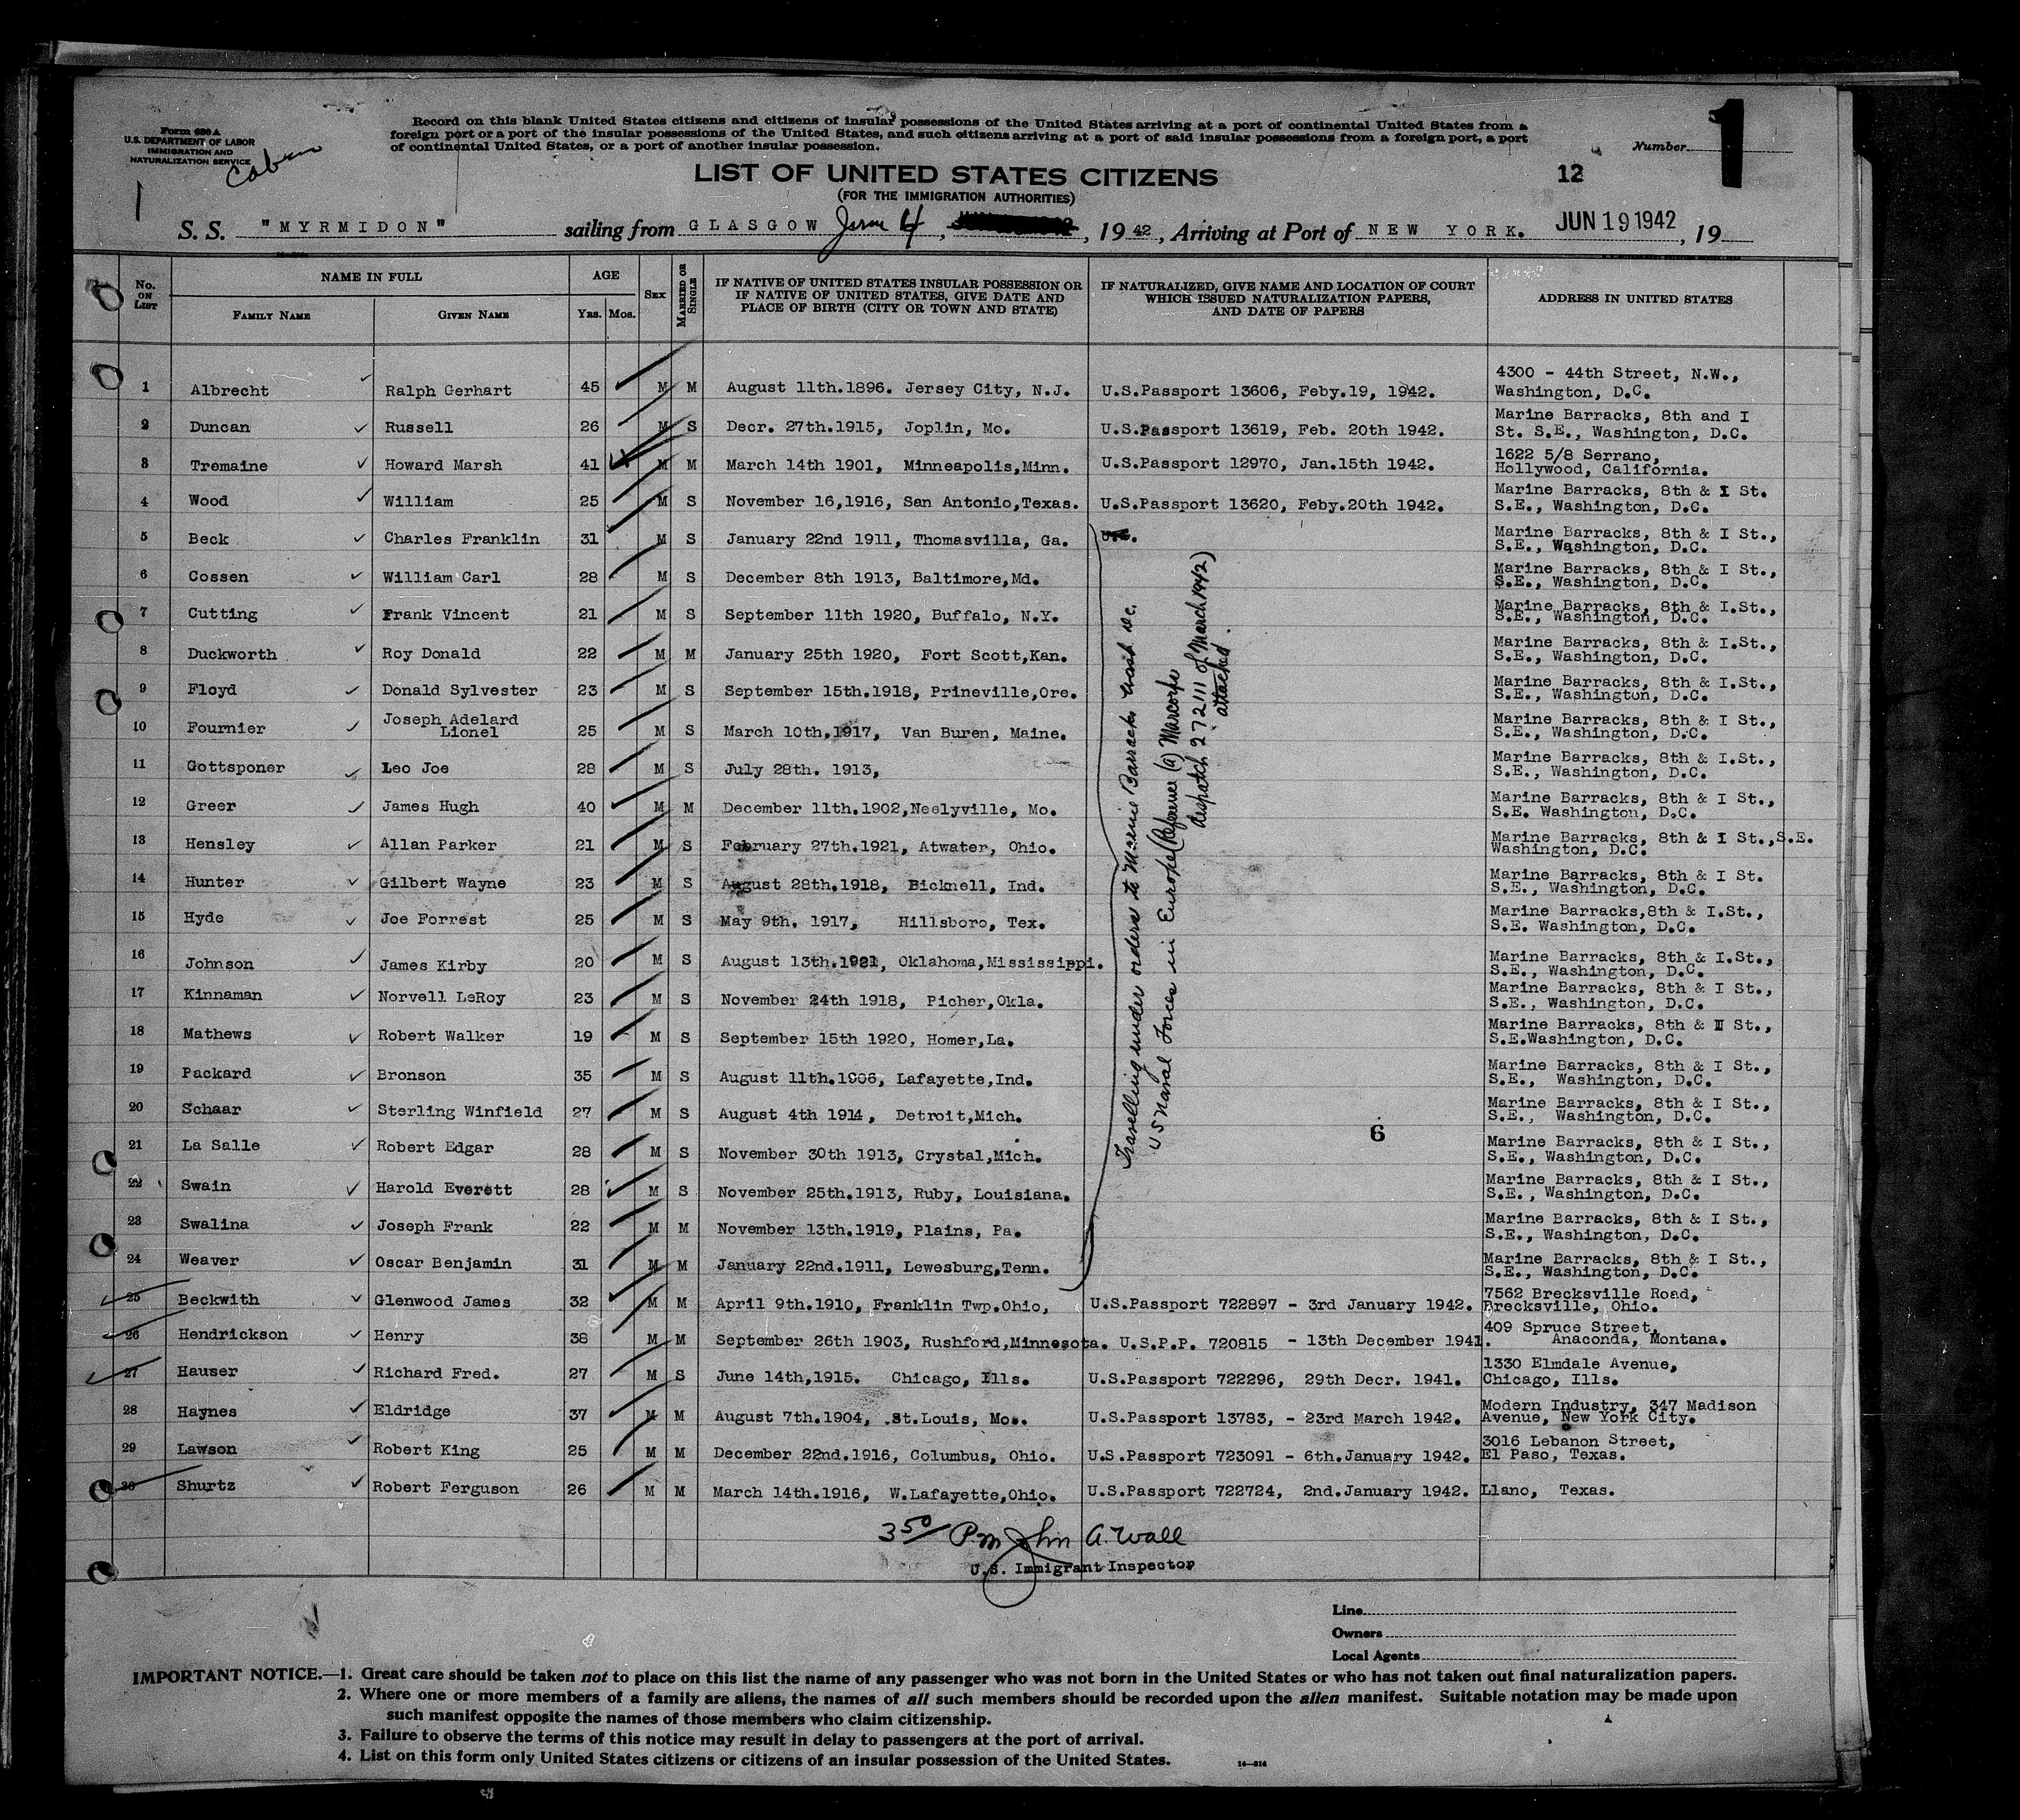 Form 630 A
U.S. DEPARTMENT OF LABOR
IMMIGRATION AND
NATURALIZATION SERVICE
Record on this blank United States citizens and citizens of insular possessions of the United States arriving at a port of continental United States from a
foreign port or a port of the insular possessions of the United States, and such citizens arriving at a port of said insular possessions from a foreign port, a port
of continental United States, or a port of another insular possession.
Number 1
LIST OF UNITED STATES CITIZENS
12
(FOR THE IMMIGRATION AUTHORITIES)
S. S. "MYRMIDON" sailing from GLASGOW June 4, 19 42, Arriving at Port of NEW YORK. JUN 19 1942, 19
No. ON LIST
NAME IN FULL
FAMILY NAME
GIVEN NAME
AGE
YRS. MOS.
SEX
MARRIED OR SINGLE
IF NATIVE OF UNITED STATES INSULAR POSSESSION OR
IF NATIVE OF UNITED STATES, GIVE DATE AND
PLACE OF BIRTH (CITY OR TOWN AND STATE)
IF NATURALIZED, GIVE NAME AND LOCATION OF COURT
WHICH ISSUED NATURALIZATION PAPERS,
AND DATE OF PAPERS
ADDRESS IN UNITED STATES
1 Albrecht Ralph Gerhart 45 M M August 11th.1896. Jersey City, N.J. U.S.Passport 13606, Feby.19, 1942. 4300 - 44th Street, N.W., Washington, D.C.
2 Duncan Russell 26 M S Decr. 27th.1915, Joplin, Mo. U.S.Passport 13619, Feb. 20th 1942. Marine Barracks, 8th and I St. S.E., Washington, D.C.
3 Tremaine Howard Marsh 41 M M March 14th 1901, Minneapolis,Minn. U.S.Passport 12970, Jan.15th 1942. 1622 5/8 Serrano, Hollywood, California.
4 Wood William 25 M S November 16,1916, San Antonio,Texas. U.S.Passport 13620, Feby.20th 1942. Marine Barracks, 8th & I St. S.E., Washington, D.C.
5 Beck Charles Franklin 31 M S January 22nd 1911, Thomasvilla, Ga. Marine Barracks, 8th & I St., S.E., Washington, D.C.
6 Cossen William Carl 28 M S December 8th 1913, Baltimore,Md. Marine Barracks, 8th & I St., S.E., Washington, D.C.
7 Cutting Frank Vincent 21 M S September 11th 1920, Buffalo, N.Y. Marine Barracks, 8th & I.St., S.E., Washington, D.C.
8 Duckworth Roy Donald 22 M M January 25th 1920, Fort Scott,Kan. Marine Barracks, 8th & I.St., S.E., Washington, D.C.
9 Floyd Donald Sylvester 23 M S September 15th.1918, Prineville,Ore. Marine Barracks, 8th & I.St., S.E., Washington, D.C.
10 Fournier Joseph Adelard Lionel 25 M S March 10th.1917, Van Buren, Maine. Marine Barracks, 8th & I St., S.E., Washington, D.C.
11 Gottsponer Leo Joe 28 M S July 28th. 1913, Marine Barracks, 8th & I.St., S.E., Washington, D.C.
12 Greer James Hugh 40 M M December 11th.1902,Neelyville, Mo. Marine Barracks, 8th & I St., S.E. Washington, D.C.
13 Hensley Allan Parker 21 M S February 27th.1921, Atwater, Ohio. Marine Barracks, 8th & I St.,S.E. Washington, D.C.
14 Hunter Gilbert Wayne 23 M S August 28th.1918, Bicknell, Ind. Marine Barracks, 8th & I St. S.E., Washington, D.C.
15 Hyde Joe Forrest 25 M S May 9th. 1917, Hillsboro, Tex. Marine Barracks,8th & I.St., S.E. Washington, D.C.
16 Johnson James Kirby 20 M S August 13th.1921, Oklahoma,Mississippi. Marine Barracks, 8th & I.St., S.E., Washington, D.C.
17 Kinnaman Norvell LeRoy 23 M S November 24th 1918, Picher,Okla. Marine Barracks, 8th & I St., S.E., Washington, D.C.
18 Mathews Robert Walker 19 M S September 15th 1920, Homer,La. Marine Barracks, 8th & I St., S.E.Washington, D.C.
19 Packard Bronson 35 M S August 11th.1906, Lafayette,Ind. Marine Barracks, 8th & I St., S.E., Washington, D.C.
20 Schaar Sterling Winfield 27 M S August 4th 1914, Detroit,Mich. Marine Barracks, 8th & I St., S.E., Washington, D.C.
21 La Salle Robert Edgar 28 M S November 30th 1913, Crystal,Mich. Marine Barracks, 8th & I St., S.E., Washington, D.C.
22 Swain Harold Everett 28 M S November 25th.1913, Ruby, Louisiana. Marine Barracks, 8th & I St., S.E., Washington, D.C.
23 Swalina Joseph Frank 22 M M November 13th.1919, Plains, Pa. Marine Barracks, 8th & I St., S.E., Washington, D.C.
24 Weaver Oscar Benjamin 31 M M January 22nd.1911, Lewesburg,Tenn. Marine Barracks, 8th & I St., S.E., Washington, D.C.
Travelling under orders to Marine Barracks Wash D.C.
US Naval Forces in Europe (Reference (a) Marcorps
despatch 272111 of March 1942)
attached.
6
25 Beckwith Glenwood James 32 M M April 9th.1910, Franklin Twp.Ohio, U.S.Passport 722897 - 3rd January 1942. 7562 Brecksville Road, Brecksville, Ohio.
26 Hendrickson Henry 38 M M September 26th 1903, Rushford,Minnesota. U.S.P.P. 720815 - 13th December 1941. 409 Spruce Street, Anaconda, Montana.
27 Hauser Richard Fred. 27 M S June 14th,1915. Chicago, Ills. U.S.Passport 722296, 29th Decr. 1941. 1330 Elmdale Avenue, Chicago, Ills.
28 Haynes Eldridge 37 M M August 7th.1904, St.Louis, Mo. U.S.Passport 13783, - 23rd March 1942. Modern Industry, 347 Madison Avenue, New York City.
29 Lawson Robert King 25 M M December 22nd.1916, Columbus, Ohio. U.S.Passport 723091 - 6th.January 1942. 3016 Lebanon Street, El Paso, Texas.
30 Shurtz Robert Ferguson 26 M M March 14th.1916, W.Lafayette,Ohio. U.S.Passport 722724, 2nd.January 1942. Llano, Texas.
3 50/ P.M John A. Wall
U.S. Immigrant Inspector
Line
Owners
Local Agents
IMPORTANT NOTICE.—1. Great care should be taken not to place on this list the name of any passenger who was not born in the United States or who has not taken out final naturalization papers.
2. Where one or more members of a family are aliens, the names of all such members should be recorded upon the alien manifest. Suitable notation may be made upon
such manifest opposite the names of those members who claim citizenship.
3. Failure to observe the terms of this notice may result in delay to passengers at the port of arrival.
4. List on this form only United States citizens or citizens of an insular possession of the United States.